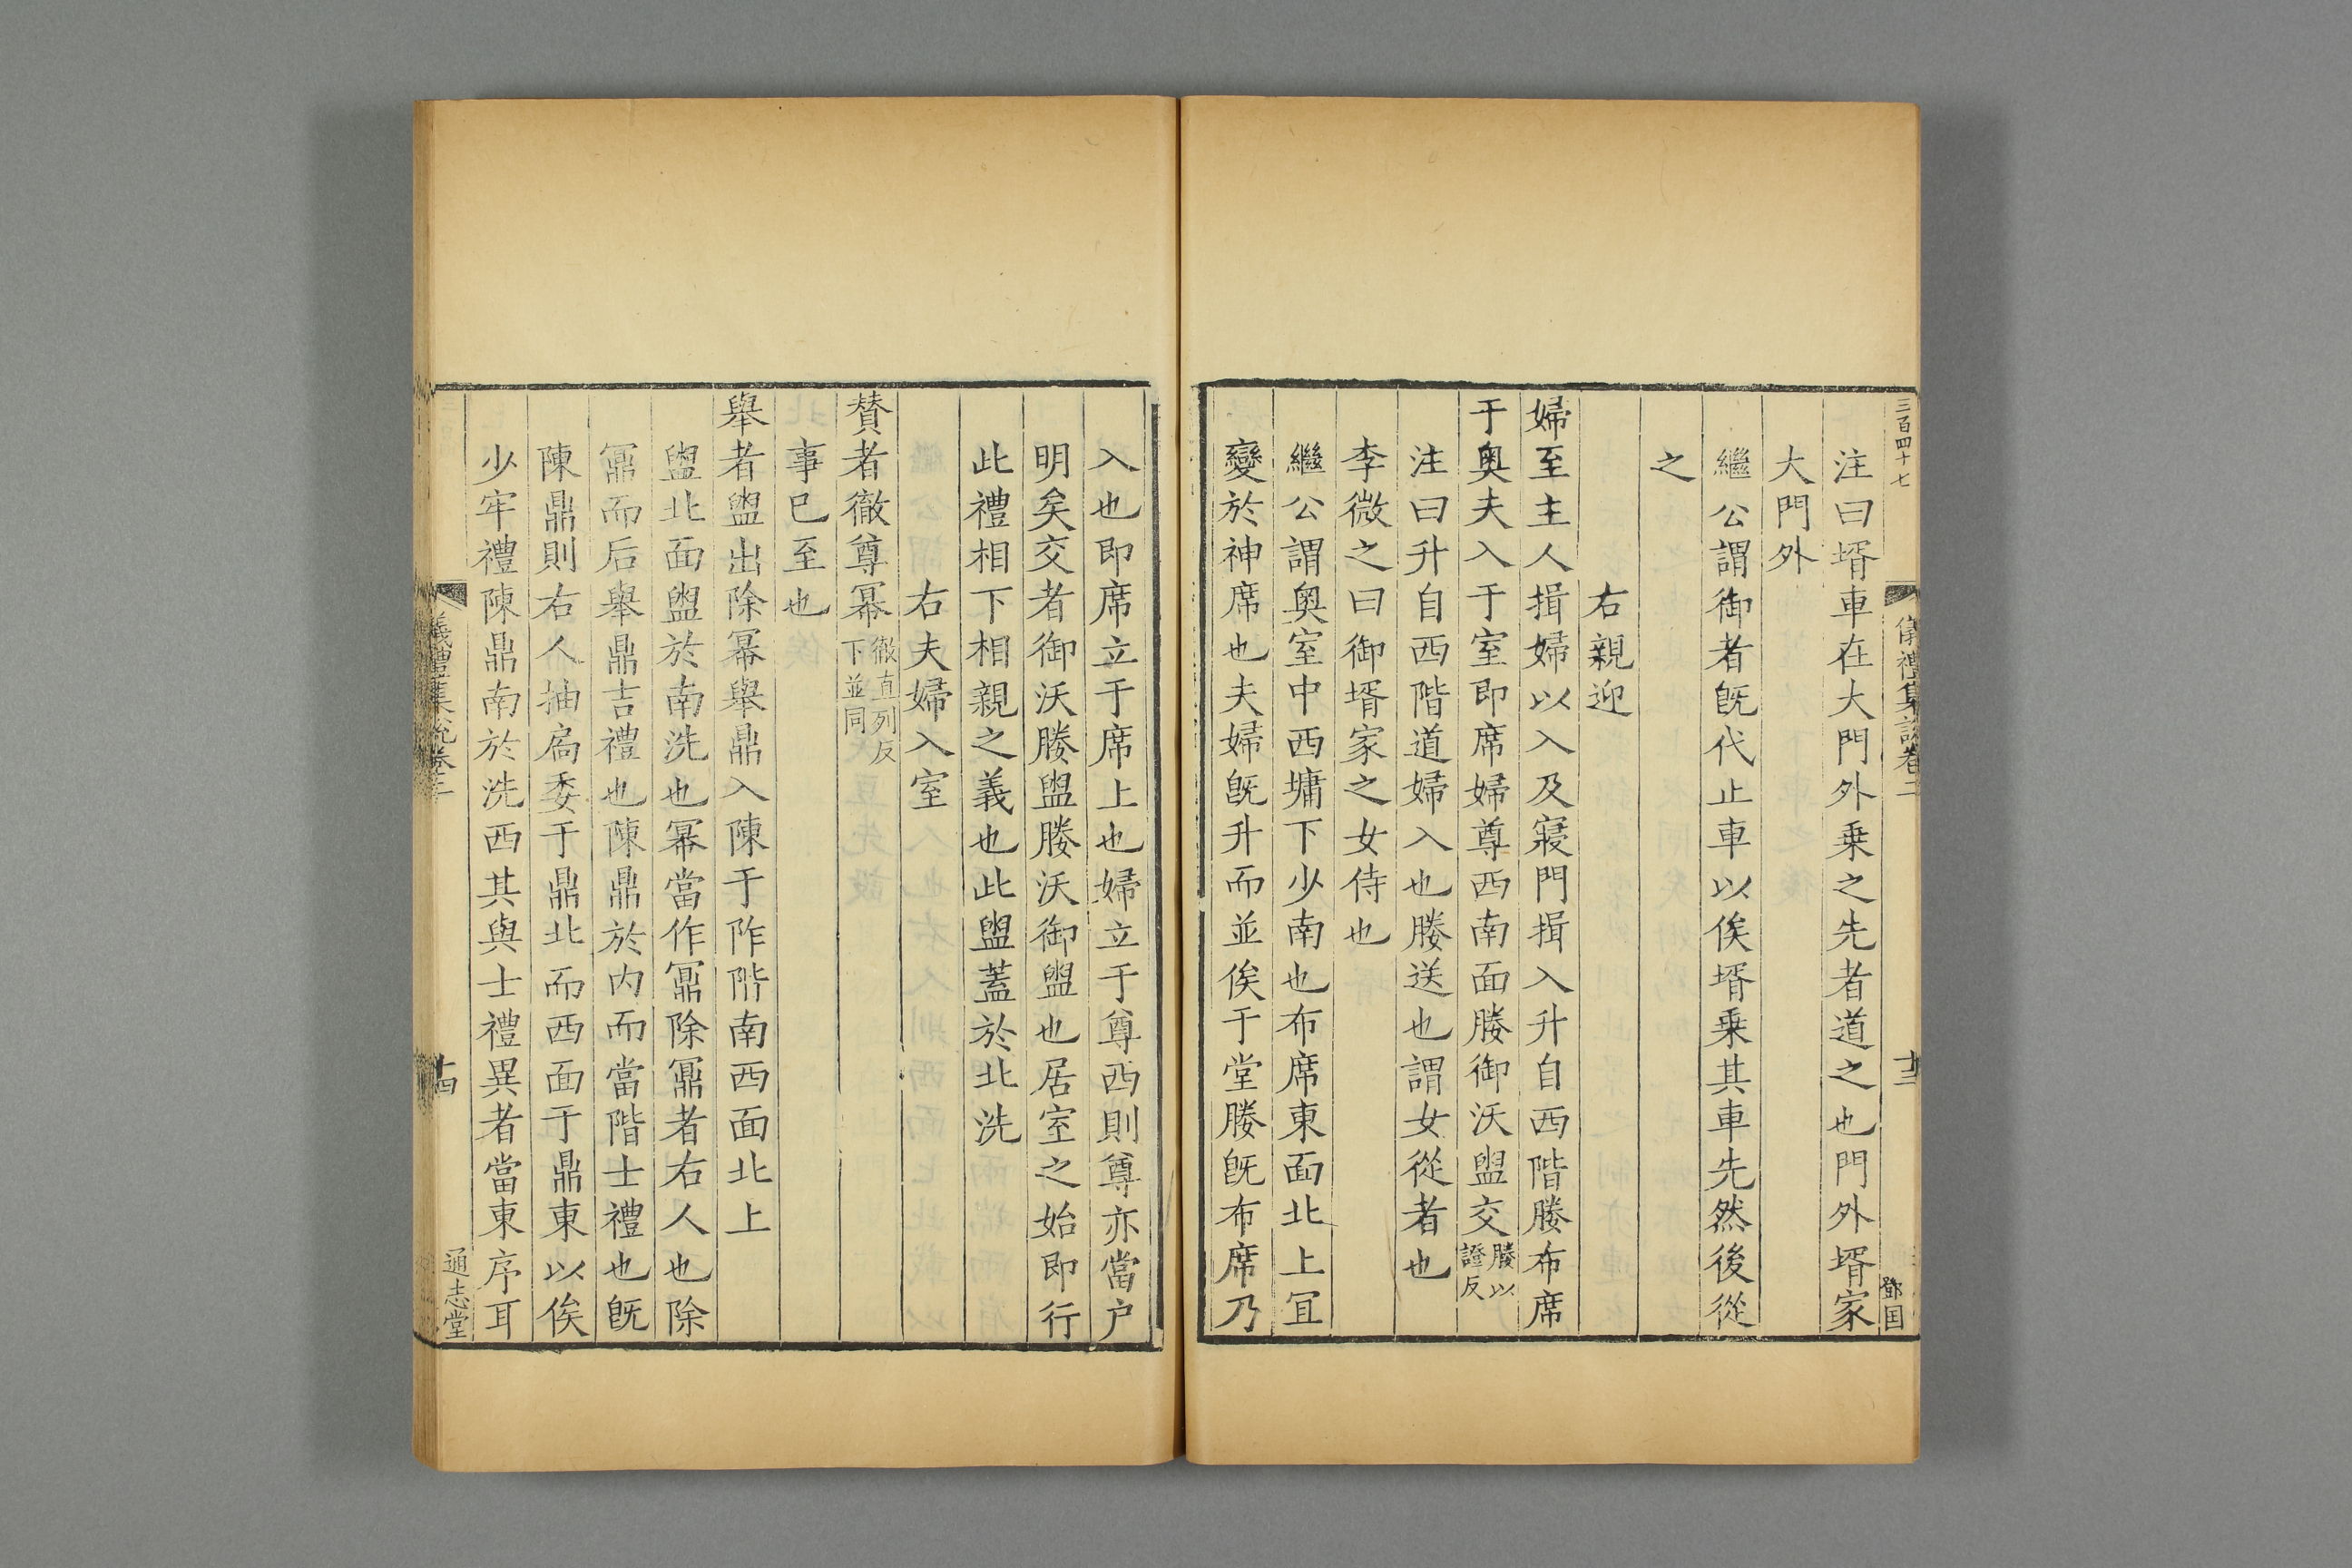 三百四十七
儀禮集說卷二
十三
鄧国
注曰壻車在大門外乗之先者道之也門外壻家
大門外
繼公謂御者旣代止車以俟壻乗其車先然後從
之
右親迎
婦至主人揖婦以入及寢門揖入升自西階媵布席
于奥夫入于室即席婦尊西南面媵御沃盥交媵以證反
注曰升自西階道婦入也媵送也謂女從者也
李微之曰御壻家之女侍也
繼公謂奥室中西墉下少南也布席東面北上冝
變於神席也夫婦旣升而並俟于堂媵旣布席乃
入也即席立于席上也婦立于尊西則尊亦當户
明矣交者御沃媵盥媵沃御盥也居室之始即行
此禮相下相親之義也此盥蓋於北洗
右夫婦入室
賛者徹尊冪徹直列反下並同
事已至也
舉者盥出除冪舉鼎入陳于阼階南西面北上
盥北面盥於南洗也冪當作鼏除鼏者右人也除
鼏而后舉鼎吉禮也陳鼎於内而當階士禮也旣
陳鼎則右人抽扃委于鼎北而西面于鼎東以俟
少牢禮陳鼎南於洗西其與士禮異者當東序耳
儀禮集說卷二
十四
通志堂